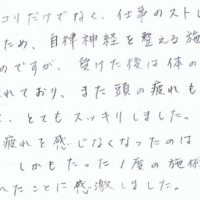 コリだけでなく、仕事のストレ
ため、自律神経を整える施
のですが、受けた後は体の
れており、また頭の疲れも
、とてもスッキリしました。
疲れを感じなくなったのは
しかもたった1度の施術
へたことに感激しました。